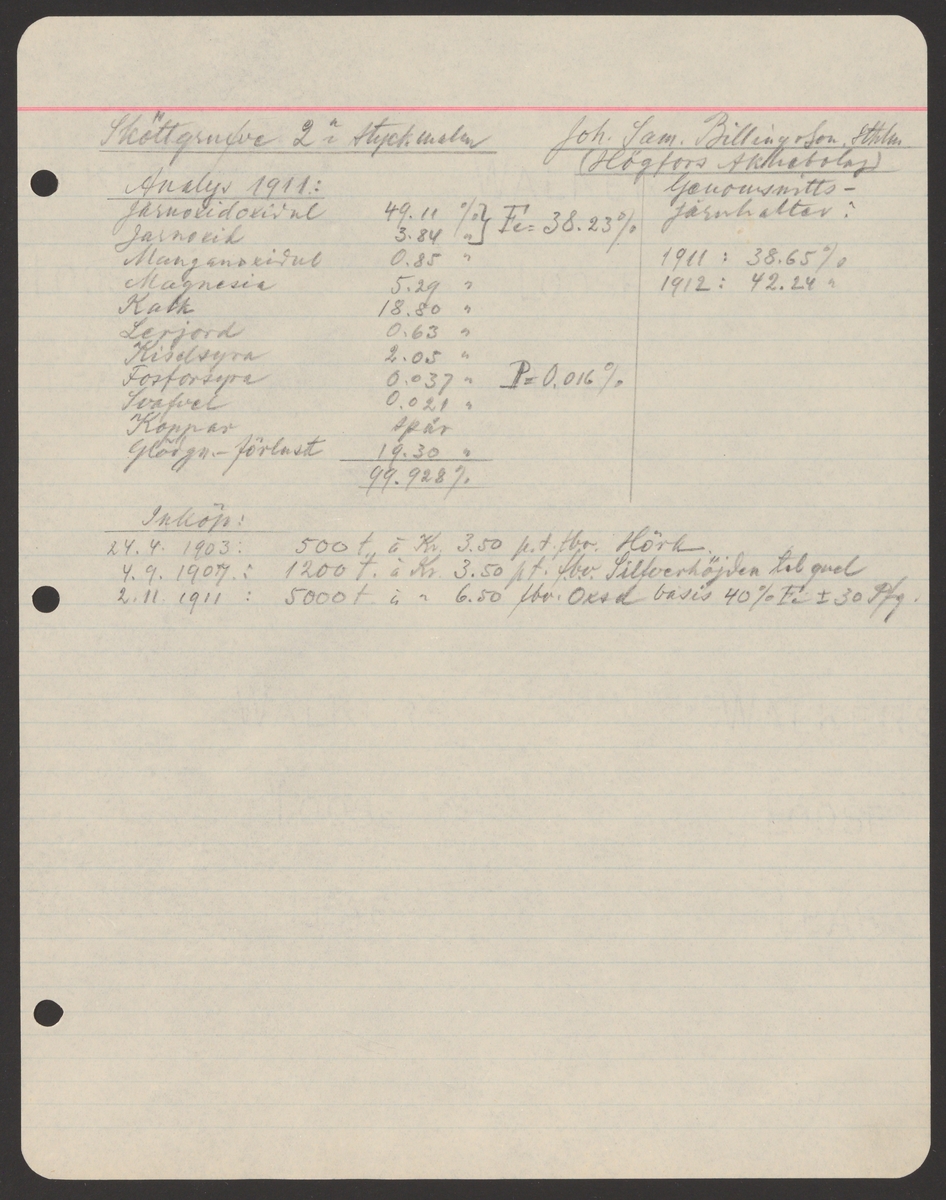 Sköttgrufve 2:a styckmalm
Joh. Sam. Billing & Son, Sthlm.
(Högfors Aktiebolag)
Analys 1911:
Järnoxidoxidul 49.11 % } Fe = 38.23 %
Järnoxid 3.84 "
Manganoxidul 0.85 "
Magnesia 5.29 "
Kalk 18.80 "
Lerjord 0.63 "
Kiselsyra 2.05 "
Fosforsyra 0.037 " P = 0.016 %
Svafvel 0.021 "
Koppar spår
Glödgn.-förlust 19.30 "
99.928 %
Genomsnitts-
järnhalter:
1911: 38.65 %
1912: 42.24 "
Inköp:
24.4. 1903: 500 t. à Kr. 3.50 p.t. fbv. Hörk.
4.9. 1907.: 1200 t. à Kr. 3.50 p.t. fbv. Silfverhöjden tel quel
2.11. 1911: 5000 t. à " 6.50 fbv. Oxsd basis 40 % Fe ± 30 Pfg.